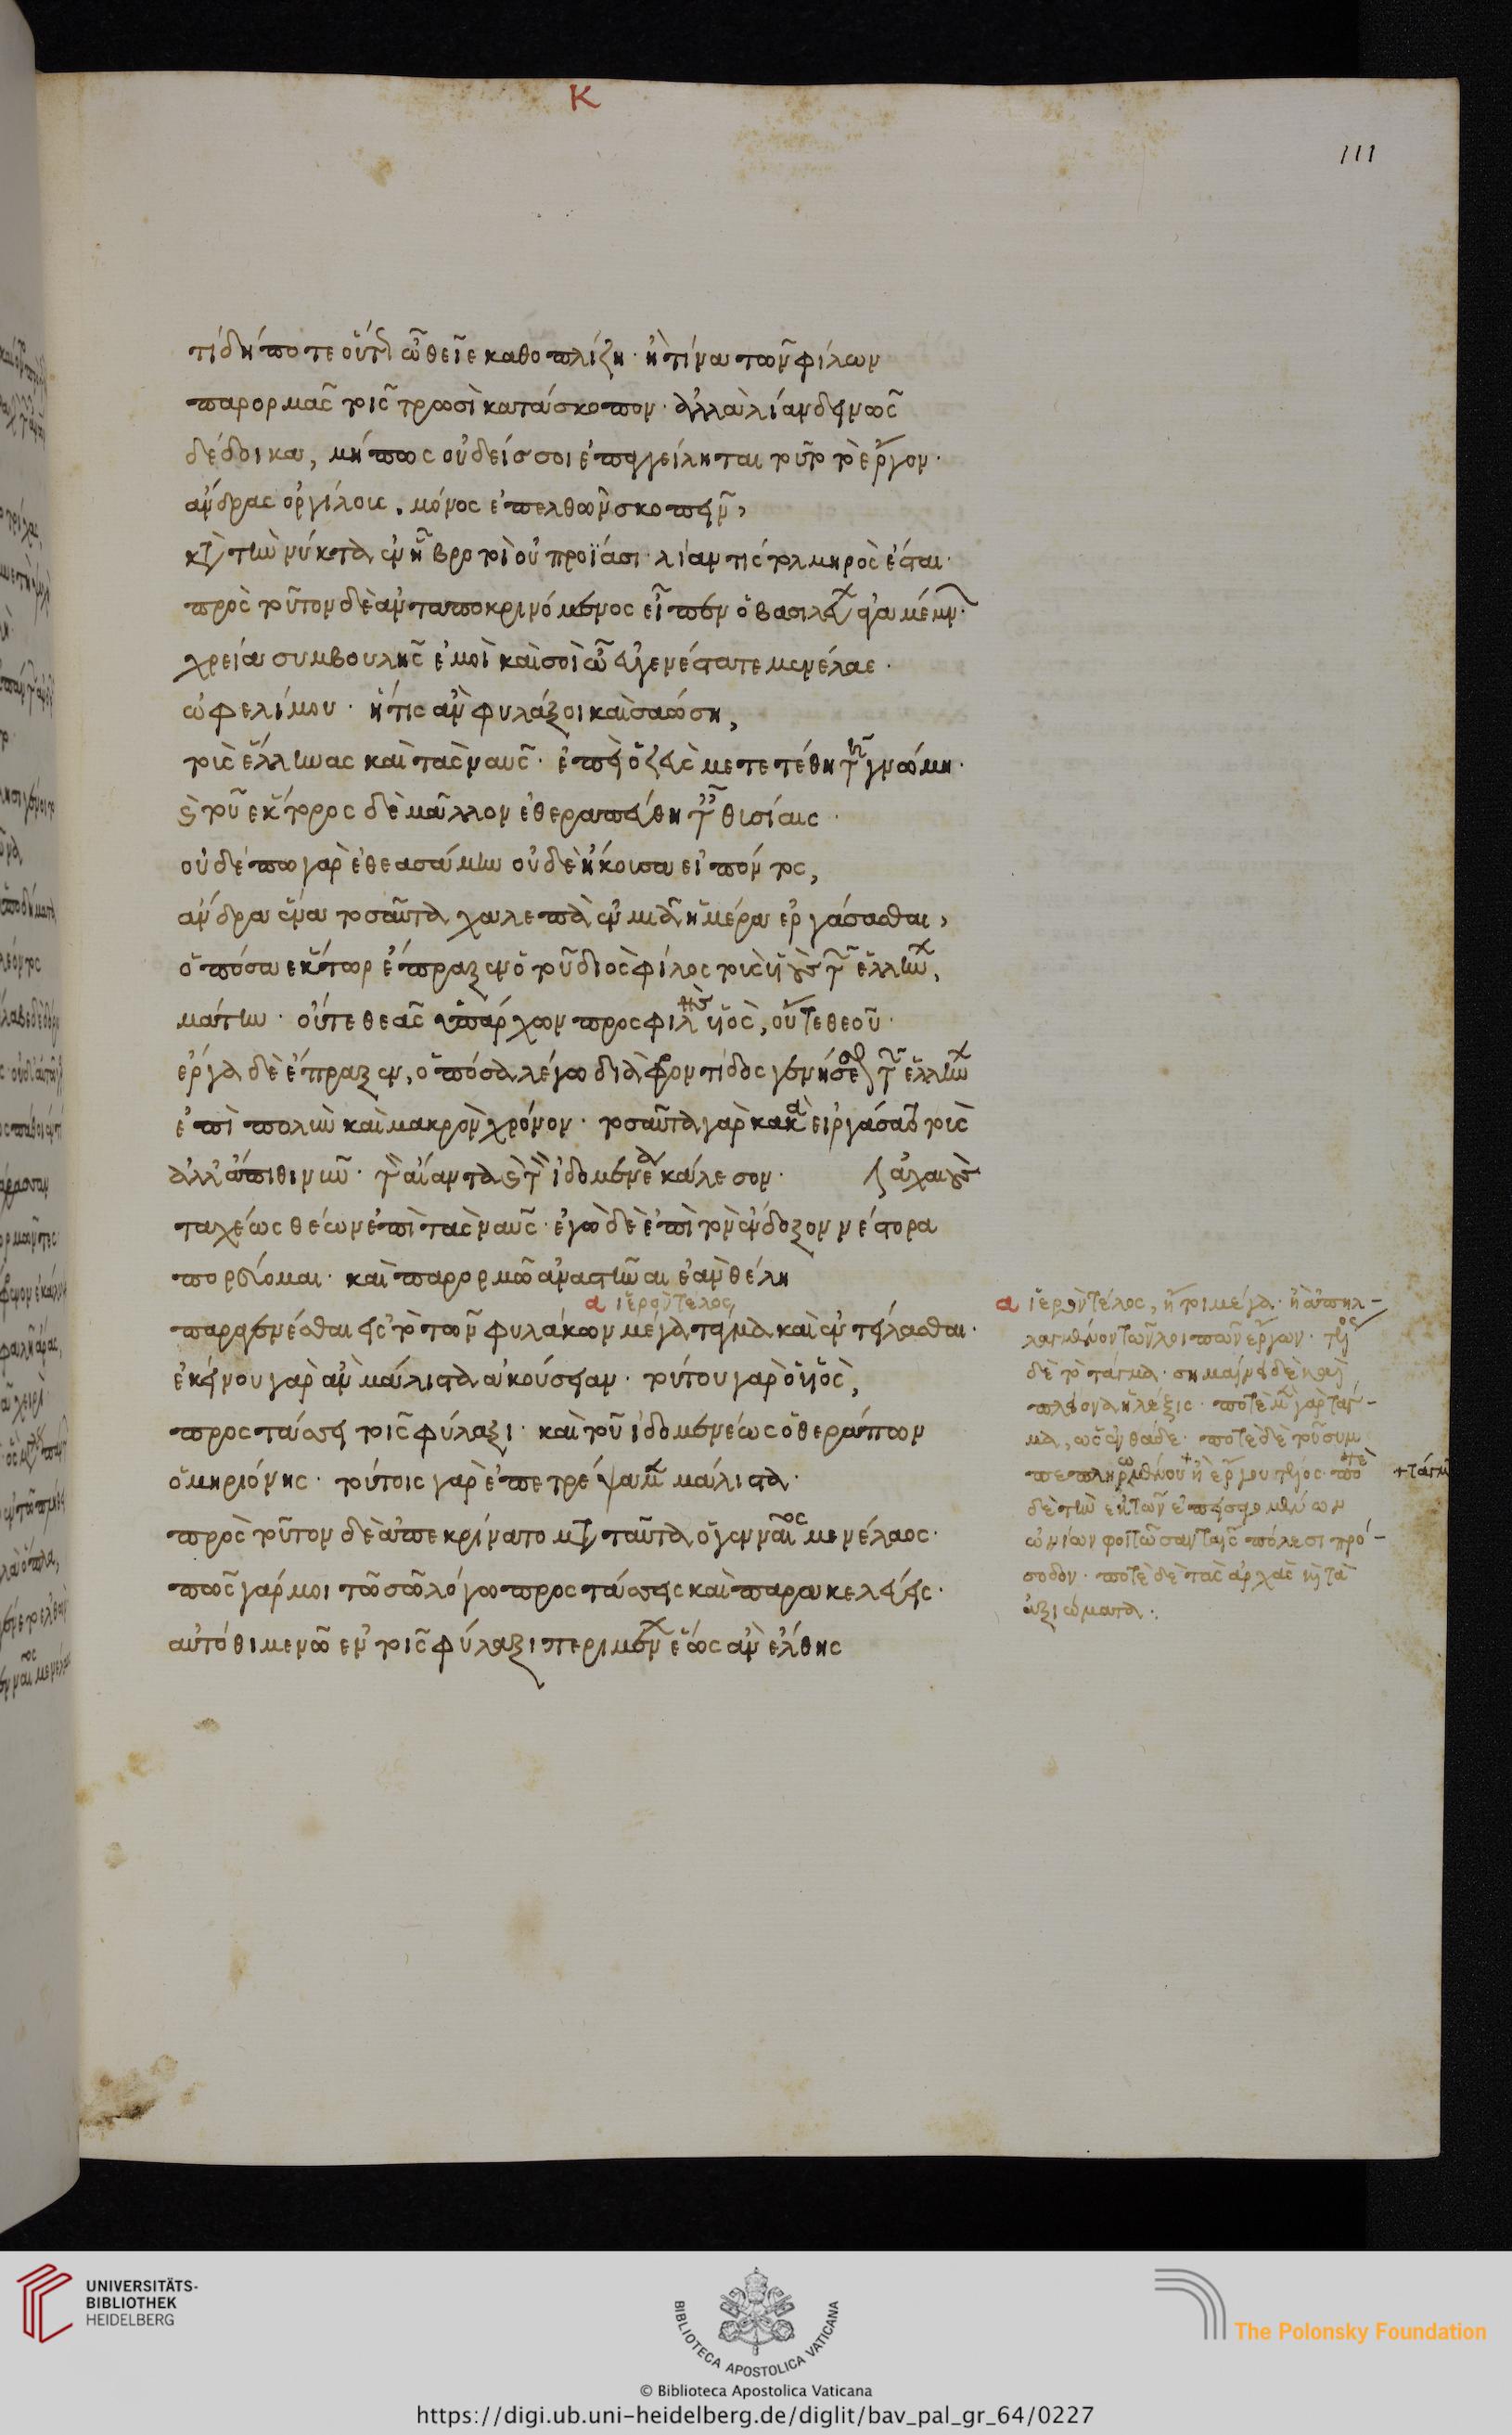 Κ
111
τίδήποτε οὕτως ὦ θεῖε καθοπλίζη· ἢ τίνα τῶν φίλων
παρορμᾶς τοῖς τρωσὶ κατάσκοπον· ἀλλὰ λίαν δεινῶς
δέδοικα, μήπως οὐδείς σοι ἐπαγγείληται τοῦτο τὸ ἔργον·
ἄνδρας ὀργίλους. μόνος ἐπελθὼν σκοπεῖν,
κατὰ τὴν νύκτα ἐν ᾗ βροτοὶ οὐ προϊάσι· λίαν τις τολμηρὸς ἔσται·
πρὸς τοῦτον δὲ ἀνταποκρινόμενος εἶπεν ὁ βασιλεὺς ἀγαμέμνων·
χρεία συμβουλῆς ἐμοὶ καὶ σοὶ ὦ εὐγενέστατε μενέλαε·
ὠφελίμου· ἥτις ἂν φυλάξοι καὶ σαώση,
τοὺς ἕλληνας καὶ τὰς ναῦς· ἐπεὶ ὁ ζεὺς μετετέθη τὴν γνώμην·
καὶ τοῦ ἕκτορος δὲ μᾶλλον ἐθεραπεύθη ταῖς θυσίαις·
οὐδέπω γὰρ ἐθεασάμην οὐδὲ ἤκουσα εἰπόντος,
ἄνδρα ἕνα τοσαῦτα χαλεπὰ ἐν μιᾶ ἡμέρα ἐργάσασθαι,
ὁπόσα ἕκτωρ ἔπραξεν ὁ τοῦ διὸς φίλος τοὺς υἱοὺς τῶν ἑλλήνων,
μάτην· οὔτε θεᾶς ὑπάρχων προσφιλὴς υἱὸς, οὔτε θεοῦ·
ἔργα δὲ ἔπραξεν, ὁπόσα λέγω διὰ φροντίδος γενήσεσθαι τῶν ἑλλήνων
ἐπὶ πολὺν καὶ μακρὸν χρόνον· τοσαῦτα γὰρ κακὰ εἰργάσατο τοὺς
ἀλλ' ἄπιθι νῦν· τὸν αἴαντα καὶ τὸν ἰδομενέα κάλεσον· ἀχαιούς
ταχέως θέων ἐπὶ τὰς ναῦς· ἐγὼ δὲ ἐπὶ τὸν ἔνδοξον νέστορα
πορεύομαι· καὶ παρορμῶ ἀναστῆναι ἐὰν θέλη
α ἱερὸν τέλος
παραγενέσθαι εἰς τὸ τῶν φυλάκων μέγα τάγμα καὶ ἐντείλασθαι·
ἐκείνου γὰρ ἂν μάλιστα ἀκούσειαν· τούτου γὰρ ὁ υἱὸς,
προστάσσει τοῖς φύλαξι· καὶ τοῦ ἰδομενέως ὁ θεράπων
ὁ μηριόνης· τούτοις γὰρ ἐπετρέψαμεν μάλιστα·
πρὸς τοῦτον δὲ ἀπεκρίνατο μετὰ ταῦτα ὁ γενναῖος μενέλαος·
πῶς γάρ μοι τῶ σῶ λόγω προστάσσεις καὶ παρακελεύεις·
αὐτόθι μενῶ ἐν τοῖς φύλαξι περιμένων ἕως ἂν ἔλθης
α ἱερὸν τέλος, ἤτοι μέγα· ἢ ἀπηλ-
λαγμένον τῶν λοιπῶν ἔργων· τέλος
δὲ τὸ τάγμα· σημαίνει δὲ καὶ
πλείονα ἡ λέξις· ποτὲ μὲν γὰρ τάγ-
μα, ὡς ἐνθάδε· ποτὲ δὲ τοῦ συμ
πεπληρωμένου ἢ ἔργου τέλος· ποτὲ + τάγμ
δὲ τὴν ἐκ τῶν ἐπεισφερομένων
ὠνίων φοιτῶσαν ταῖς πόλεσι πρό-
σοδον· ποτὲ δὲ τὰς ἀρχὰς καὶ τὰ
ἀξιώματα.
UNIVERSITÄTS-
BIBLIOTHEK
HEIDELBERG
BIBLIOTECA APOSTOLICA VATICANA
The Polonsky Foundation
© Biblioteca Apostolica Vaticana
https://digi.ub.uni-heidelberg.de/diglit/bav_pal_gr_64/0227